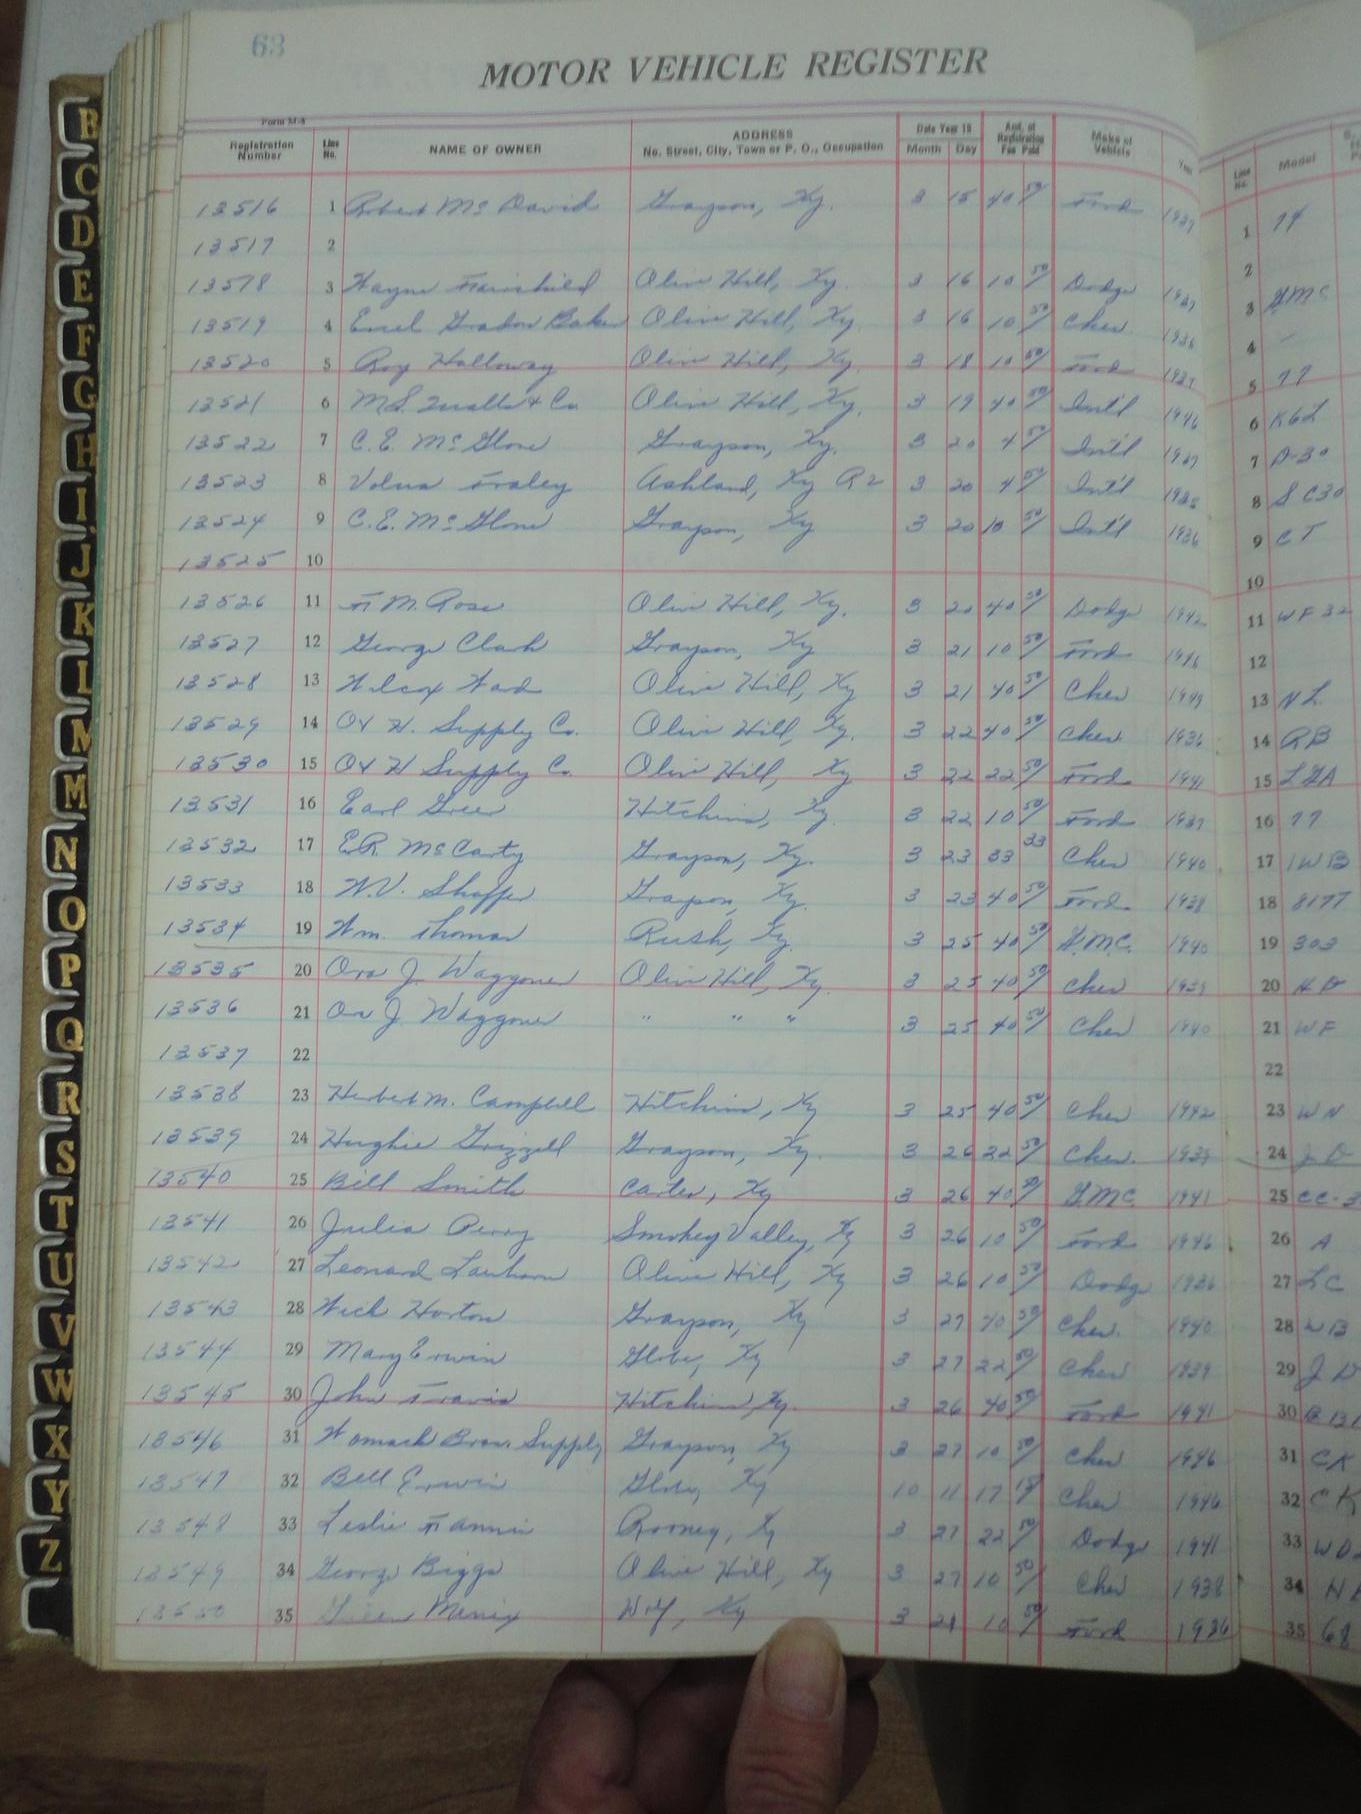 63
MOTOR VEHICLE REGISTER
Form M-8
Registration Number Line No. NAME OF OWNER ADDRESS No. Street, City, Town or P. O., Occupation Date Year 19 Month Day Amt. of Registration Fee Paid Make of Vehicle Year Line No. Model
13516 1 Robert McDavid Grayson, Ky. 3 15 40 50 Ford 1937 1 74
13517 2 2
13518 3 Wayne Fairchild Olive Hill, Ky. 3 16 10 50 Dodge 1937 3 GMC
13519 4 Grabon Baker Olive Hill, Ky. 3 16 10 50 Chev. 1936 4 -
13520 5 Roy Holloway Olive Hill, Ky. 3 18 10 50 Ford 1937 5 77
13521 6 M.S. & Co. Olive Hill, Ky. 3 19 40 50 Int'l 1946 6
13522 7 C.E. McGlone Grayson, Ky. 3 20 4 50 Int'l 1937 7 D-30
13523 8 Volna Fraley Ashland, Ky R2 3 20 4 50 Int'l 1935 8 S C30
13524 9 C.E. McGlone Grayson, Ky 3 20 10 50 Int'l 1936 9 CT
13525 10 10
13526 11 M. Rose Olive Hill, Ky. 3 20 40 50 Dodge 1942 11 WF 32
13527 12 George Clark Grayson, Ky 3 21 10 50 Ford 1946 12
13528 13 Wilcox Ward Olive Hill, Ky 3 21 40 50 Chev 1949 13 NL
13529 14 O & H. Supply Co. Olive Hill, Ky. 3 22 40 50 Chev 1936 14 RB
13530 15 O & H Supply Co. Olive Hill, Ky 3 22 22 50 Ford 1941 15
13531 16 Earl Greer Hitchins, Ky. 3 22 10 50 Ford 1937 16 77
13532 17 E.R. McCarty Grayson, Ky. 3 23 33 33 Chev 1940 17 1WB
13533 18 W.V. Shaffer Grayson, Ky. 3 23 40 50 Ford 1938 18 817T
13534 19 Wm. Thomas Rush, Ky. 3 25 40 50 G.M.C. 1940 19 303
13535 20 Ora J. Waggoner Olive Hill, Ky. 3 25 40 50 Chev 1939 20
13536 21 Ora J. Waggoner " " " 3 25 40 50 Chev 1940 21 WF
13537 22 22
13538 23 Herbert M. Campbell Hitchins, Ky 3 25 40 50 Chev 1942 23 WN
13539 24 Hughie Grizzell Grayson, Ky. 3 26 22 50 Chev. 1939 24 JD
13540 25 Bill Smith Carter, Ky 3 26 40 50 G.M.C. 1941 25 CC-3
13541 26 Julia Perry Smokey Valley, Ky 3 26 10 50 Ford 1946 26 A
13542 27 Leonard Lanham Olive Hill, Ky 3 26 10 50 Dodge 1936 27 LC
13543 28 Horton Grayson, Ky 3 27 40 50 Chev. 1940 28 WB
13544 29 Mary Erwin Globe, Ky 3 27 22 50 Chev 1939 29 JD
13545 30 John Travis Hitchins, Ky. 3 26 40 50 Ford 1941 30
13546 31 Womack Bros. Supply Grayson, Ky 3 27 10 50 Chev 1946 31 CK
13547 32 Bell Erwin Globe, Ky 10 11 17 Chev 1946 32 CK
13548 33 Leslie Fannin Rooney, Ky 3 27 22 50 Dodge 1941 33
13549 34 George Biggs Olive Hill, Ky 3 27 10 50 Chev 1938 34
13550 35 Ky 3 10 50 Ford 1936 35 68
B
C
D
E
F
G
H
I
J
K
L
M
M
N
O
P
Q
R
S
T
U
V
W
X
Y
Z